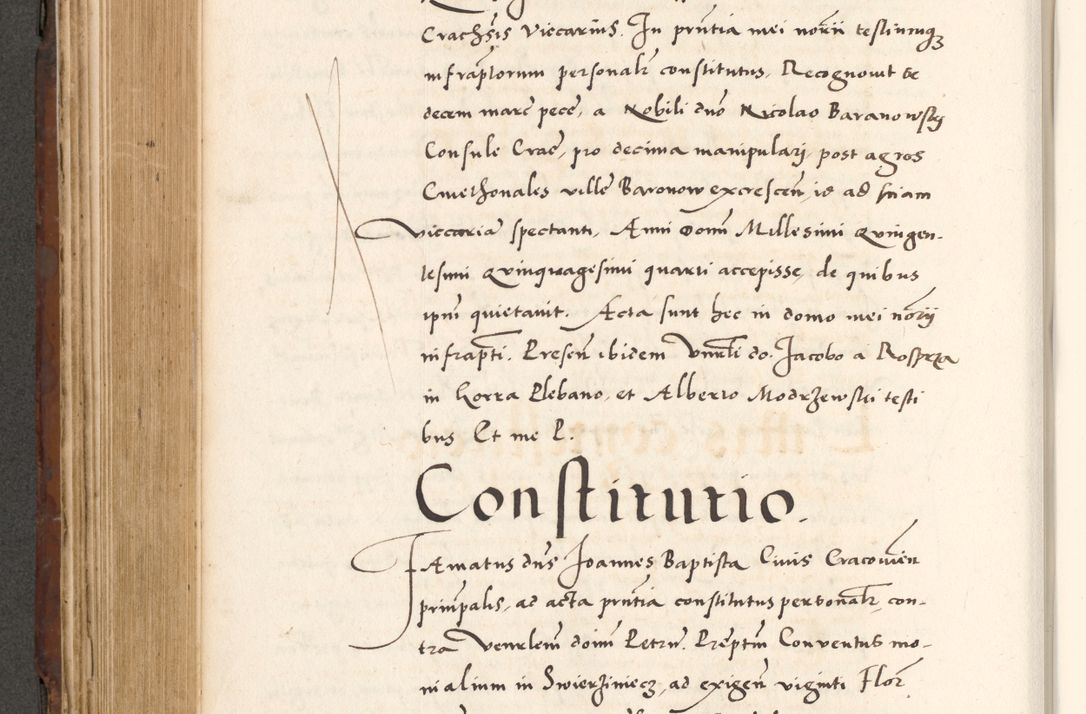 Crachsis Viccarius. In pruntia mei norii testiumq3
infraptorum personalr constitutus, Recognouit se
decem marc pece, a Nobili dno Nicolao Baranowsky
Consule Crac, pro decima manipulari, post agros
Cmethonales ville Baronow excrescen, id ad suam
Viccaria spectanti, Anni Domi Millesimi Quingen-
tesimi Quinquagesimi quarti accepisse, de quibus
ipm quietauit. Acta sunt hec in domo mei norij
infrapti. Presen ibidem Vnrli do. Jacobo a Rosprza
in Korra Plebano, et Alberto Modrzewski testi
bus Et me P.
Constitutio.
FAmatus dns Joannes Baptista Ciuis Cracouien
prinpalis, ad acta pruntia constitutus personalr, con-
tra Venrlem domi Petru. Preptm Conuentus mo-
nialium in Swierziniecz, ad exigen viginti Flor